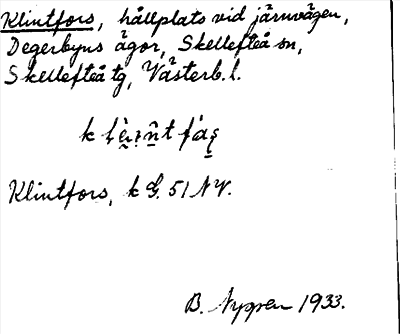 Klintfors, hållplats vid järnvägen,
Degerbyns ägor, Skellefteå sn,
Skellefteå tg, Västerb. l.
Klintfors, k G. 51 NV.
B. Nyggen 1933.